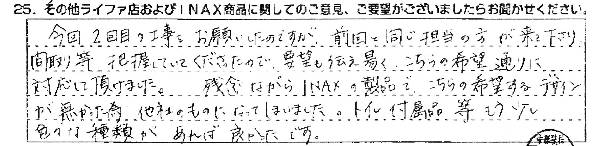 25. その他ライファ店およびINAX商品に関してのご意見、ご要望がございましたらお聞かせください。
今回2回目の工事をお願いしたのですが、前回と同じ担当の方が来て下さり
間取り等 把握していてくださたので、要望も伝え易く こちらの希望通りに
対応して頂けました。 残念ながらINAXの製品で こちらの希望するデザイン
が無かた為 他社のものになってしまいました。トイレ付属品 等 もう少し
色々な種類が あれば良かったです。